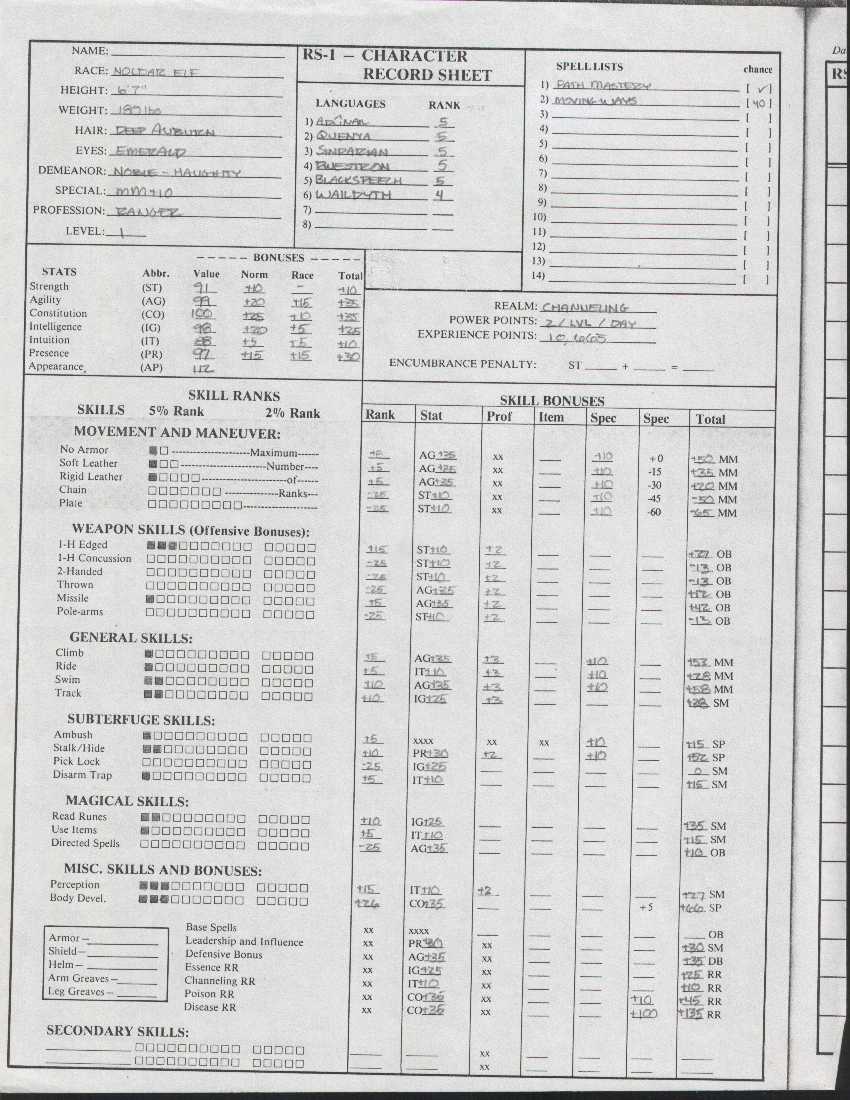 NAME:
RACE: NOLDAR ELF
HEIGHT: 6'7"
WEIGHT: 189 lbs
HAIR: DEEP AUBURN
EYES: EMERALD
DEMEANOR: NOBLE-HAUGHTY
SPECIAL: MM+10
PROFESSION: RANGER
LEVEL: 1
RS-1 – CHARACTER
RECORD SHEET
LANGUAGES RANK
1) 5
2) QUENYA 5
3) SINDARIAN 5
4) 5
5) BLACKSPEECH 5
6) WAILDYTH 4
7)
8)
SPELL LISTS chance
1) PATH MASTERY [ ✓ ]
2) MOVING WAYS [ 40 ]
3) [ ]
4) [ ]
5) [ ]
6) [ ]
7) [ ]
8) [ ]
9) [ ]
10) [ ]
11) [ ]
12) [ ]
13) [ ]
14) [ ]
----- BONUSES -----
STATS Abbr. Value Norm Race Total
Strength (ST) 91 +10 - +10
Agility (AG) 99 +20 +15 +35
Constitution (CO) 100 +25 +10 +35
Intelligence (IG) 98 +20 +5 +25
Intuition (IT) 88 +5 +5 +10
Presence (PR) 97 +15 +15 +30
Appearance (AP) 112
REALM: CHANNELING
POWER POINTS: 2/LVL/DAY
EXPERIENCE POINTS: 10,665
ENCUMBRANCE PENALTY: ST ____ + ____ = ____
SKILL RANKS
SKILLS 5% Rank 2% Rank
SKILL BONUSES
Rank Stat Prof Item Spec Spec Total
MOVEMENT AND MANEUVER:
No Armor Maximum +5 AG+35 xx +10 +0 +50 MM
Soft Leather Number +5 AG+35 xx +10 -15 +35 MM
Rigid Leather of +5 AG+35 xx +10 -30 +20 MM
Chain Ranks -25 ST+10 xx +10 -45 -50 MM
Plate -25 ST+10 xx +10 -60 -65 MM
WEAPON SKILLS (Offensive Bonuses):
1-H Edged +15 ST+10 +2 +27 OB
1-H Concussion -25 ST+10 +2 -13 OB
2-Handed -25 ST+10 +2 -13 OB
Thrown -25 AG+35 +2 +12 OB
Missile +5 AG+35 +2 +42 OB
Pole-arms -25 ST+10 +2 -13 OB
GENERAL SKILLS:
Climb +5 AG+35 +3 +10 +53 MM
Ride +5 IT+10 +3 +10 +28 MM
Swim +10 AG+35 +3 +10 +58 MM
Track +10 IG+25 +3 +38 SM
SUBTERFUGE SKILLS:
Ambush +5 xxxx xx xx +10 +15 SP
Stalk/Hide +10 PR+30 +2 +10 +52 SP
Pick Lock -25 IG+25 0 SM
Disarm Trap +5 IT+10 +15 SM
MAGICAL SKILLS:
Read Runes +10 IG+25 +35 SM
Use Items +5 IT+10 +15 SM
Directed Spells -25 AG+35 +10 OB
MISC. SKILLS AND BONUSES:
Perception +15 IT+10 +2 +27 SM
Body Devel. +26 CO+35 +5 +66 SP
Base Spells xx xxxx OB
Leadership and Influence xx PR+30 xx +30 SM
Defensive Bonus xx AG+35 xx +35 DB
Essence RR xx IG+25 xx +25 RR
Channeling RR xx IT+10 xx +10 RR
Poison RR xx CO+35 xx +10 +45 RR
Disease RR xx CO+35 xx +100 +135 RR
Armor –
Shield –
Helm –
Arm Greaves –
Leg Greaves –
SECONDARY SKILLS:
xx
xx
Da
RS